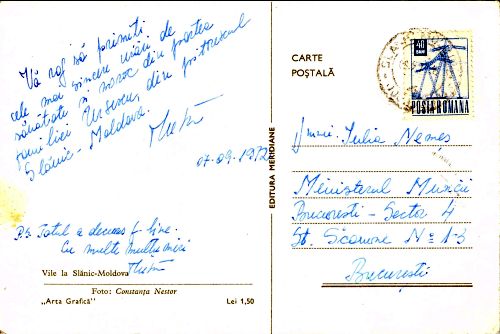 Vă rog să primiți
cele mai sincere urări de
sănătate și noroc din partea
familiei Ursescu, din pitorescul
Slănic-Moldova.
07.09.1972
P.S. Totul a decurs f. bine.
Cu multe mulțumiri
Vile la Slănic-Moldova
Foto: Constanța Nestor
„Arta Grafică” Lei 1,50
EDITURA MERIDIANE
CARTE
POȘTALĂ
40
BANI
POSTA ROMANA
Iulia Nemeș
Ministerul Muncii
București - Sector 4
St. Scaune Nº 1-3
București